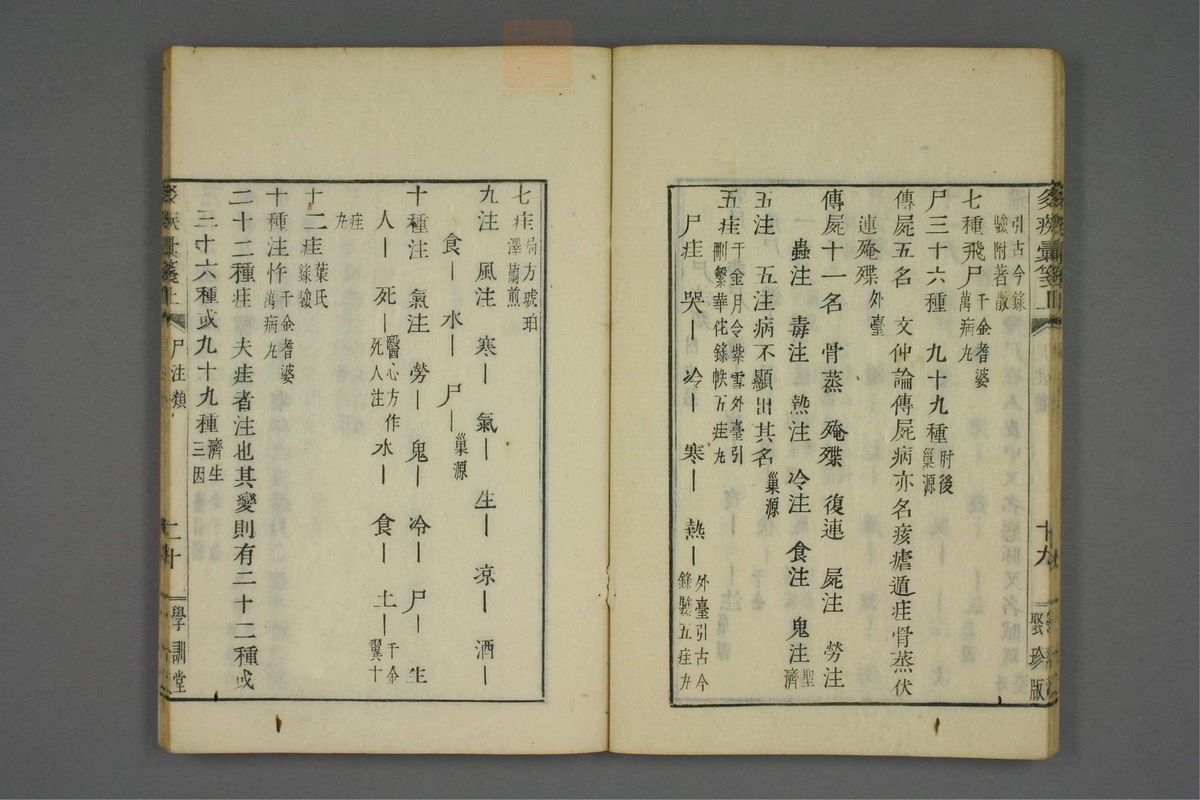 引古今錄
驗附著散
七種飛尸千金耆婆
萬病丸
尸三十六種 九十九種肘後
巢源
傳屍五名 文仲論傳屍病亦名痎瘧遁疰骨蒸伏
連殗殜外臺
傳屍十一名 骨蒸 殗殜 復連 屍注 勞注
蟲注 毒注 熱注 冷注 食注 鬼注聖
濟
五注 五注病不顯出其名巢源
五疰千金月令紫雪外臺引
刪繁華佗錄帙五疰丸
尸疰 哭ー 冷ー 寒ー 熱ー外臺引古今
錄驗五疰丸
十九
聚珍版
七疰局方琥珀
澤蘭煎
九注 風注 寒ー 氣ー 生ー 凉ー 酒ー
食ー 水ー 尸ー巢源
十種注 氣注 勞ー 鬼ー 冷ー 尸ー 生
人ー 死ー醫心方作
死人注 水ー 食ー 土ー千金
翼十
疰
丸
十二疰葉氏
錄驗
十種注忤千金耆婆
萬病丸
二十二種疰夫疰者注也其變則有二十二種或
三十六種或九十九種濟生
三因
尸注類
二十
學訓堂